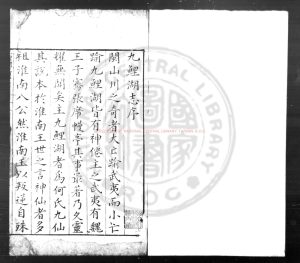 九鯉湖志序
閩山川之奇者大亡踰武夷而小亡
踰九鯉湖皆有神僊主之武夷有魏
王子騫張湛輩其事最著乃久靈
耀無聞矣主九鯉湖者為何氏九仙
其說本於淮南王世之言神仙者多
祖淮南八公然淮南王以叛逆自殊
CENTRAL LIBRARY